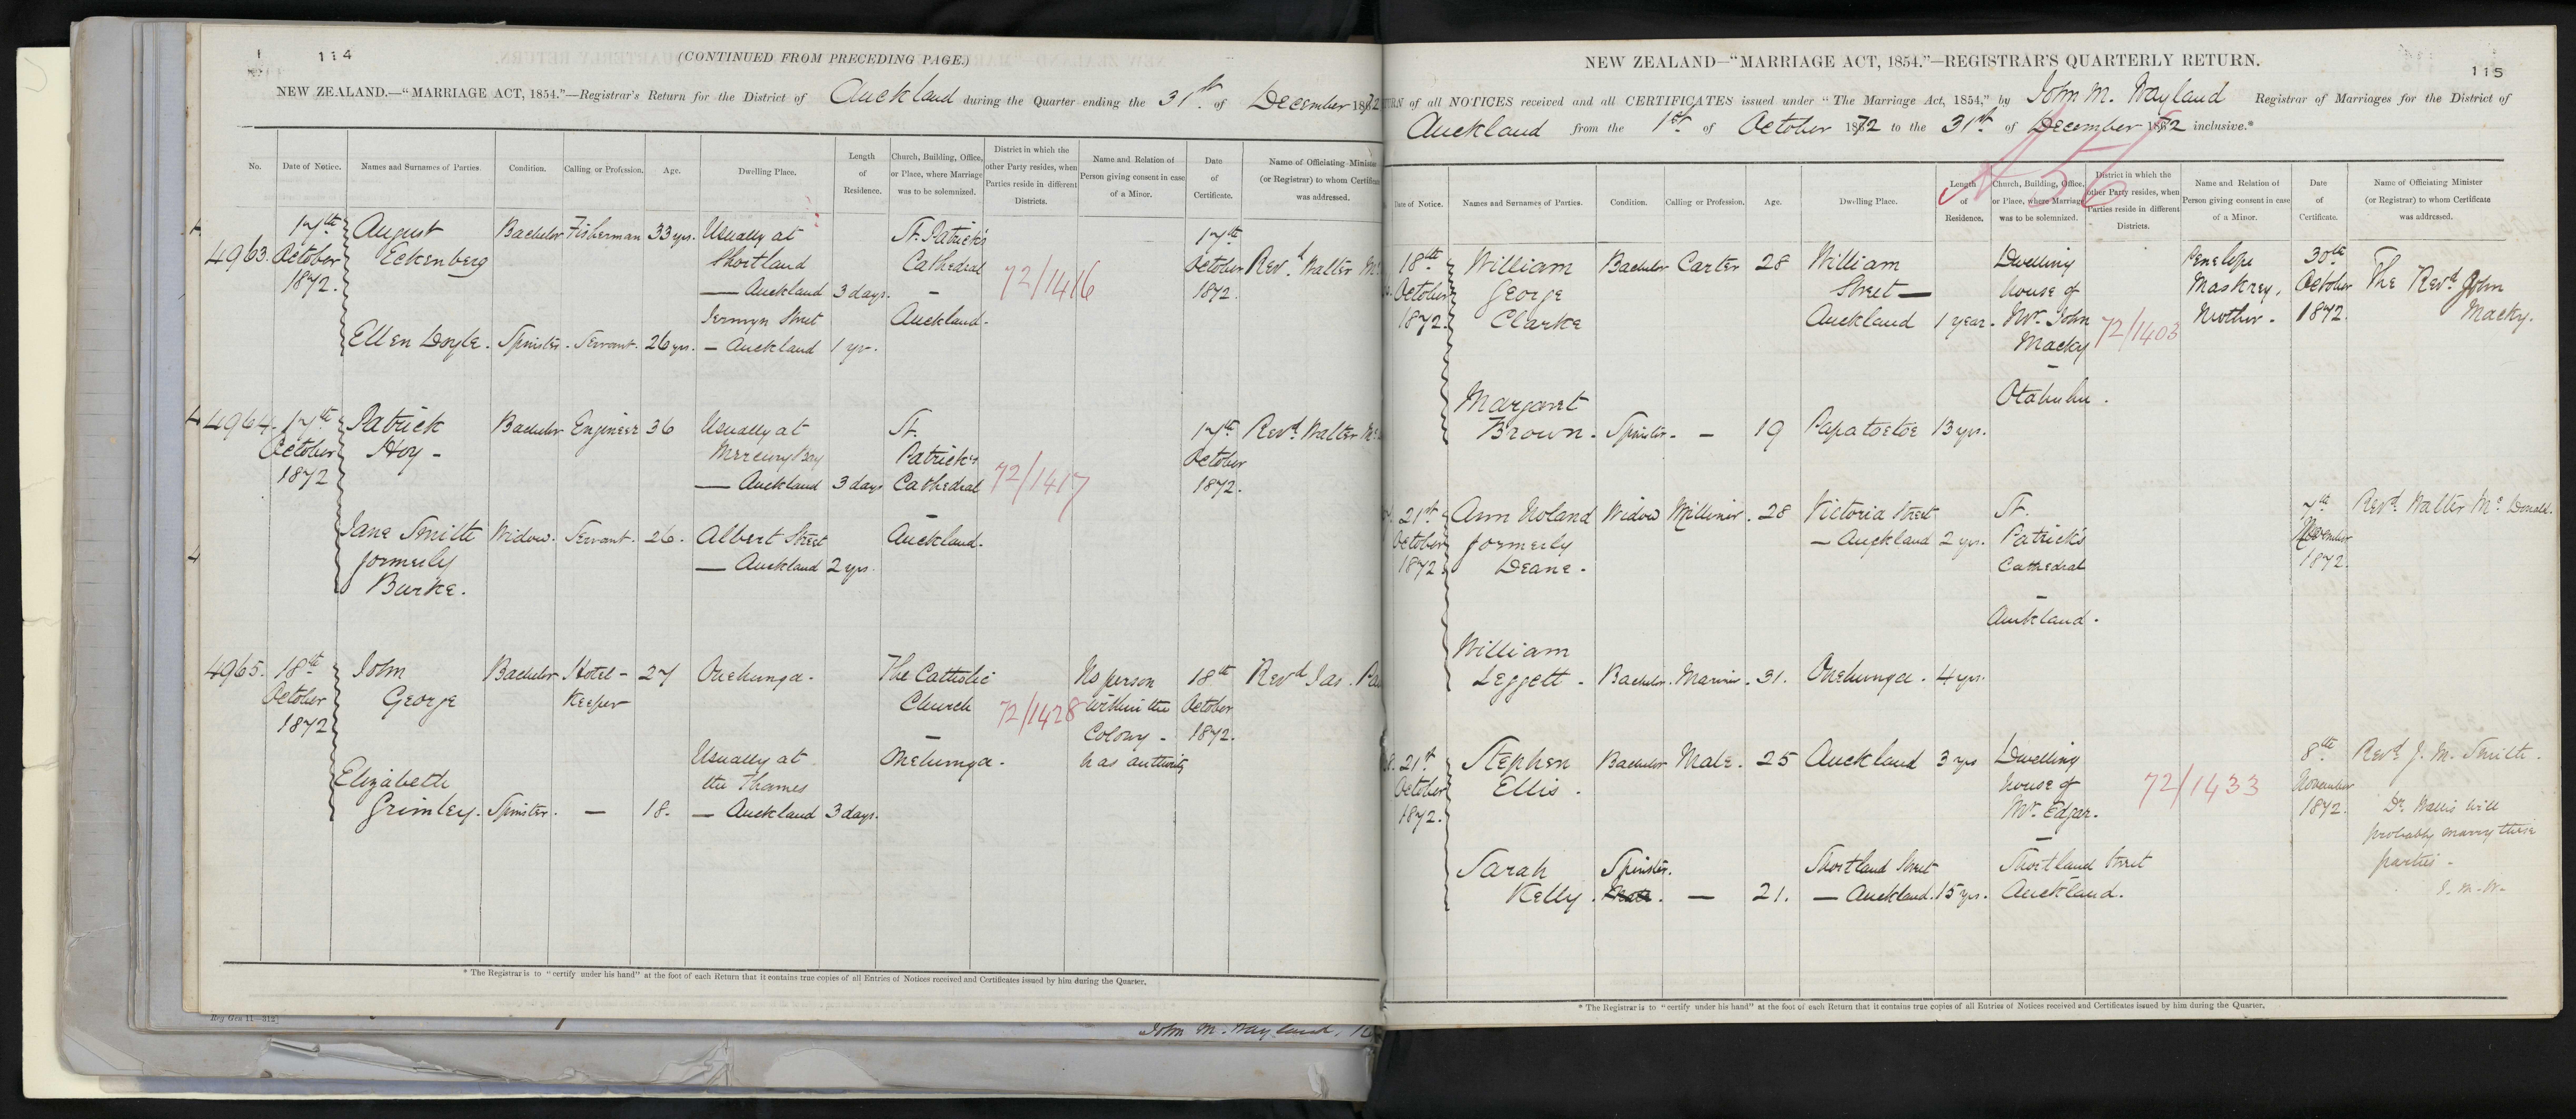 114
(CONTINUED FROM PRECEDING PAGE.)
NEW ZEALAND.—"MARRIAGE ACT, 1854."—Registrar's Return for the District of Auckland during the Quarter ending the 31st of December 1872
No. Date of Notice. Names and Surnames of Parties. Condition. Calling or Profession. Age. Dwelling Place. Length of Residence. Church, Building, Office, or Place, where Marriage was to be solemnized. District in which the other Party resides, when Parties reside in different Districts. Name and Relation of Person giving consent in case of a Minor. Date of Certificate. Name of Officiating Minister (or Registrar) to whom Certificate was addressed.
4963. 17th October 1872.
August Eckenberg Bachelor Fisherman 33 yrs. Usually at Shortland — Auckland 3 days. St. Patrick's Cathedral – Auckland. 72/1416 17th October 1872. Revd. Walter
Ellen Doyle. Spinster. Servant. 26 yrs. Jermyn Street – Auckland 1 yr.
4964. 17th October 1872
Patrick Hoy – Bachelor Engineer 36 Usually at Mercury Bay — Auckland 3 days St. Patrick's Cathedral – Auckland. 72/1417 17th October 1872. Revd. Walter
Jane Smith formerly Burke. Widow. Servant. 26. Albert Street — Auckland 2 yrs.
4965. 18th October 1872
John George Bachelor Hotel-Keeper 27 Onehunga. The Catholic Church – Onehunga. 72/1428 No person within the Colony – has authority 18th October 1872. Revd Jas.
Elizabeth Grimley. Spinster. — 18. Usually at the Thames — Auckland 3 days.
* The Registrar is to "certify under his hand" at the foot of each Return that it contains true copies of all Entries of Notices received and Certificates issued by him during the Quarter.
Reg Gen 11—312]
John M. Wayland,
NEW ZEALAND—"MARRIAGE ACT, 1854."—REGISTRAR'S QUARTERLY RETURN.
115
of all NOTICES received and all CERTIFICATES issued under "The Marriage Act, 1854," by John M. Wayland Registrar of Marriages for the District of
Auckland from the 1st of October 1872 to the 31st of December 1872 inclusive.*
A56
Date of Notice. Names and Surnames of Parties. Condition. Calling or Profession. Age. Dwelling Place. Length of Residence. Church, Building, Office, or Place, where Marriage was to be solemnized. District in which the other Party resides, when Parties reside in different Districts. Name and Relation of Person giving consent in case of a Minor. Date of Certificate. Name of Officiating Minister (or Registrar) to whom Certificate was addressed.
18th October 1872.
William George Clarke Bachelor Carter 28 William Street — Auckland 1 year. Dwelling house of Mr. John Macky – Otahuhu. 72/1403 Penelope Maskrey, Mother – 30th October 1872. The Revd John Macky.
Margaret Brown. Spinster. – 19 Papatoetoe 13 yrs.
21st October 1872.
Ann Noland formerly Deane. Widow Milliner. 28 Victoria Street – Auckland 2 yrs. St. Patrick's Cathedral – Auckland. 7th November 1872. Revd. Walter Mc Donald.
William Leggett – Bachelor. Mariner. 31. Onehunga. 4 yrs.
21st October 1872.
Stephen Ellis. Bachelor Mate. 25 Auckland 3 yrs Dwelling house of Mr. Edgar. – Shortland Street Auckland. 72/1433 8th November 1872. Revd J. M. Smith. Dr. Wallis will probably marry these parties – J. M. W.
Sarah Kelly. Spinster. — 21. Shortland Street — Auckland. 15 yrs.
* The Registrar is to "certify under his hand" at the foot of each Return that it contains true copies of all Entries of Notices received and Certificates issued by him during the Quarter.